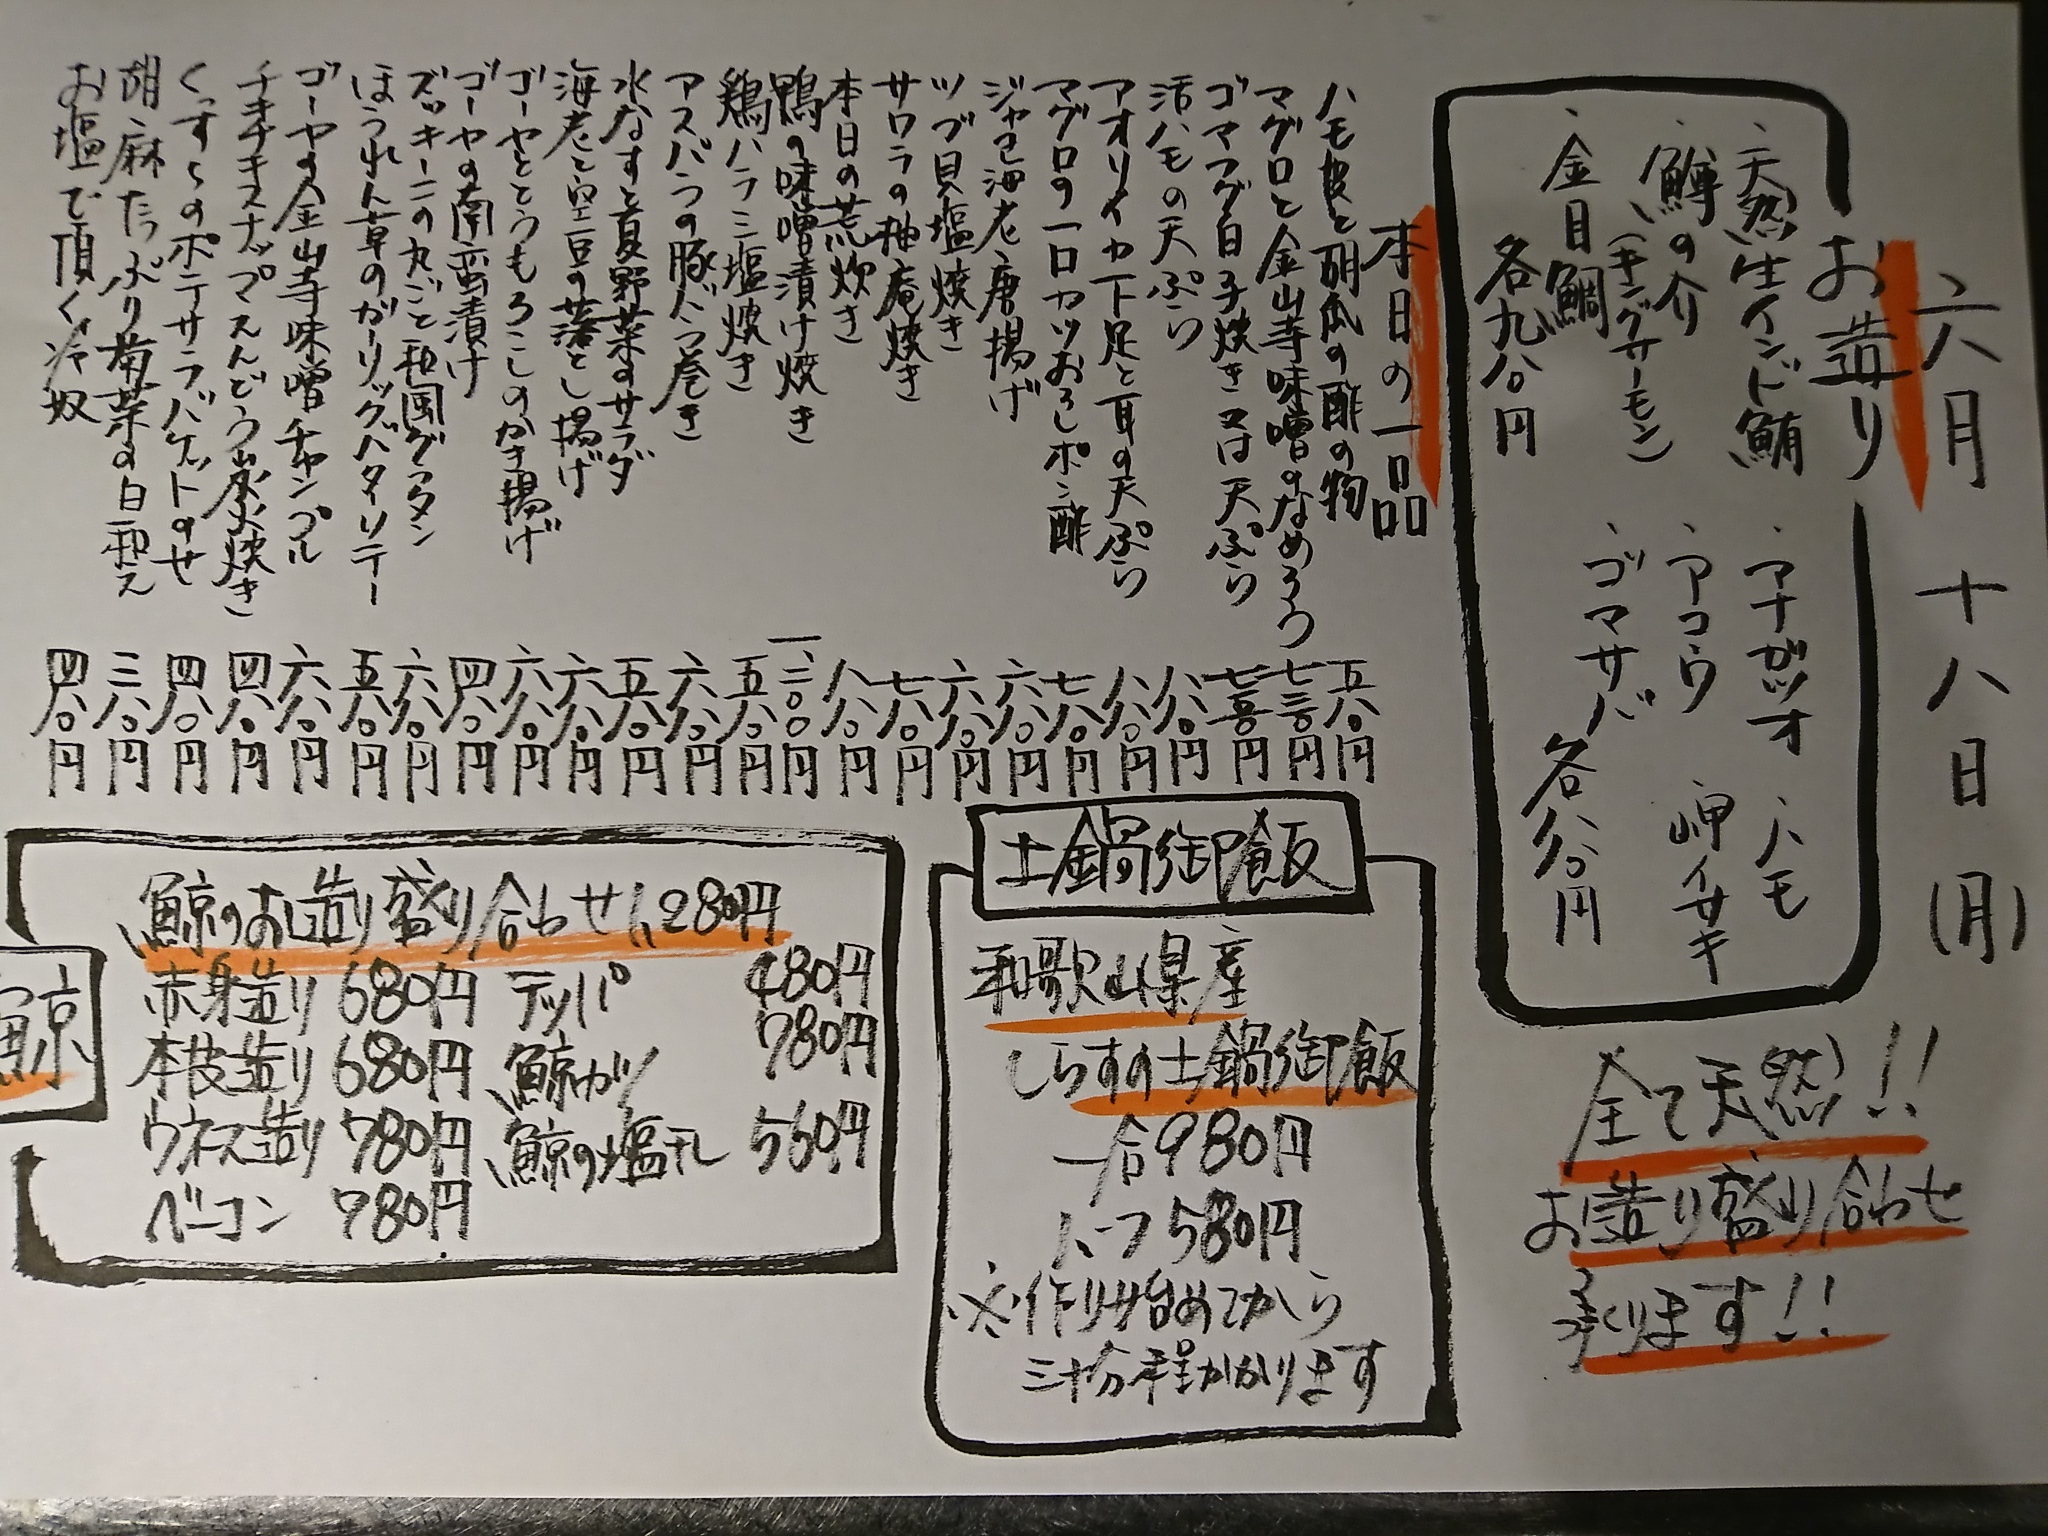 六月十八日(月)
お造り
、天然生インド鮪
、鱒の介
(キングサーモン)
、金目鯛
各九八〇円
、アナガツオ
、ハモ
、アコウ
岬イサキ
、ゴマサバ
各八八〇円
全て天然!!
お造り盛り合わせ
承ります!!
本日の一品
ハモ皮と胡瓜の酢の物 五八〇円
マグロと金山寺味噌のなめろう 七三〇円
ゴマフグ白子焼き又は天ぷら 七五〇円
活ハモの天ぷら 八八〇円
アオリイカ下足と耳の天ぷら 六八〇円
マグロの一口カツおろしポン酢 七八〇円
ジャコ海老唐揚げ 六八〇円
ツブ貝塩焼き 六八〇円
サワラの柚庵焼き 七八〇円
本日の荒炊き 八八〇円
鴨の味噌漬け焼き 一、二〇〇円
鶏ハラミ塩焼き 五八〇円
アスパラの豚バラ巻き 六八〇円
水なすと夏野菜のサラダ 五八〇円
海老と空豆の落とし揚げ 六八〇円
ゴーヤととうもろこしのかき揚げ 六八〇円
ゴーヤの南蛮漬け 四八〇円
ズッキーニの丸ごと和風グラタン 六八〇円
ほうれん草のガーリックバターソテー 五八〇円
ゴーヤの金山寺味噌チャンプル 六八〇円
チキチキスナップえんどう炭焼き 四八〇円
くずしのポテサラバケットのせ 四八〇円
胡麻たっぷり菊菜の白和え 三八〇円
お塩で頂く冷奴 四八〇円
土鍋御飯
和歌山県産
しらすの土鍋御飯
一合980円
ハーフ580円
※作り始めてから
三十分程かかります
鯨
鯨のお造り盛り合わせ1,280円
赤身造り 680円 テッパ 480円
本皮造り 680円 鯨カツ 780円
ウネス造り 780円 鯨の塩干し 560円
ベーコン 780円